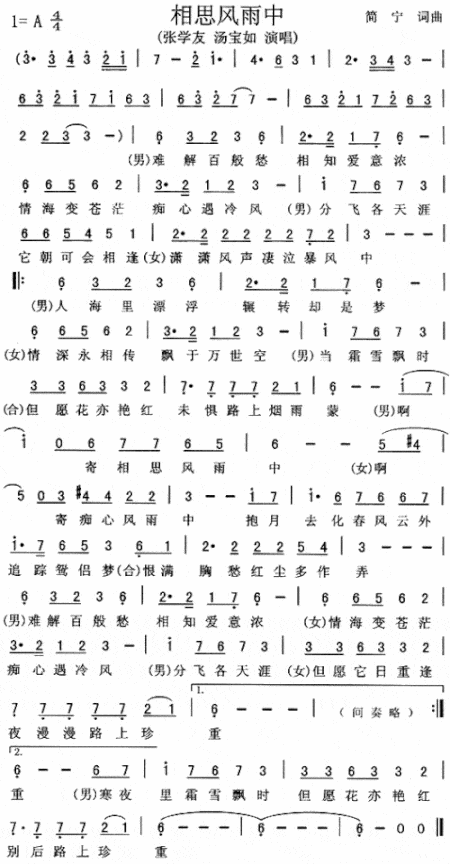 相思风雨中
1=A 4/4 简 宁 词曲
(张学友 汤宝如 演唱)
(3· 3 3 3 2 1 | 7 - 2 1 · | 4 · 6 3 1 | 2 · 3 4 3 - |
6 3 2 1 7 1 6 3 | 6 3 2 6 7 7 - | 6 3 2 1 7 2 6 7 |
2 2 3 3 - ) | 6 3 2 3 6 | 2 · 2 1 7 6 - |
(男)难 解 百 般 愁 相 知 爱 意 浓
6 6 5 6 2 | 3 · 2 1 2 3 - | 1 7 6 7 3 |
情 海 变 苍 茫 痴 心 遇 冷 风 (男)分 飞 各 天 涯
6 6 5 4 5 1 | 2 · 2 2 2 2 1 7 2 | 3 - - - |
它 朝 可 会 相 逢(女)潇 潇 风 声 凄 泣 暴 风 中
‖: 6 3 2 3 6 | 2 · 2 1 7 6 |
(男)人 海 里 漂 浮 辗 转 却 是 梦
6 6 5 6 2 | 3 · 2 1 2 3 - | 1 7 6 7 3 |
(女)情 深 永 相 传 飘 于 万 世 空 (男)当 霜 雪 飘 时
3 3 6 3 2 3 2 | 7 · 7 7 7 2 1 | 6 - - 1 7 |
(合)但 愿 花 亦 艳 红 未 惧 路 上 烟 雨 蒙 (男)啊
1 0 6 7 7 6 5 | 3 - - - | 6 - - 5 #4 |
寄 相 思 风 雨 中 (女)啊
5 0 3 #4 4 2 2 | 3 - - 1 7 | 1 · 6 7 6 6 7 |
寄 痴 心 风 雨 中 抱 月 去 化 春 风 云 外
1 · 7 6 5 3 6 1 | 2 · 2 2 2 5 4 2 | 3 - - - |
追 踪 鸳 侣 梦(合)恨 满 胸 愁 红 尘 多 作 弄
6 3 2 3 6 | 2 · 2 1 7 6 - | 6 6 5 6 2 |
(男)难 解 百 般 愁 相 知 爱 意 浓 (女)情 海 变 苍 茫
3 · 2 1 2 3 - | 1 7 6 7 3 | 3 3 6 3 2 3 2 |
痴 心 遇 冷 风 (男)分 飞 各 天 涯 (女)但 愿 它 日 重 逢
1.
7 7 7 7 7 2 1 | 6 - - - | (间奏略) :‖
夜 漫 漫 路 上 珍 重
2.
6 - - 6 7 | 1 7 6 7 3 | 3 3 6 3 2 3 2 |
重 (男)寒 夜 里 霜 雪 飘 时 但 愿 花 亦 艳 红
7 · 7 7 7 2 1 | 6 - - - | 6 - - - | 6 - 0 0 ‖
别 后 路 上 珍 重